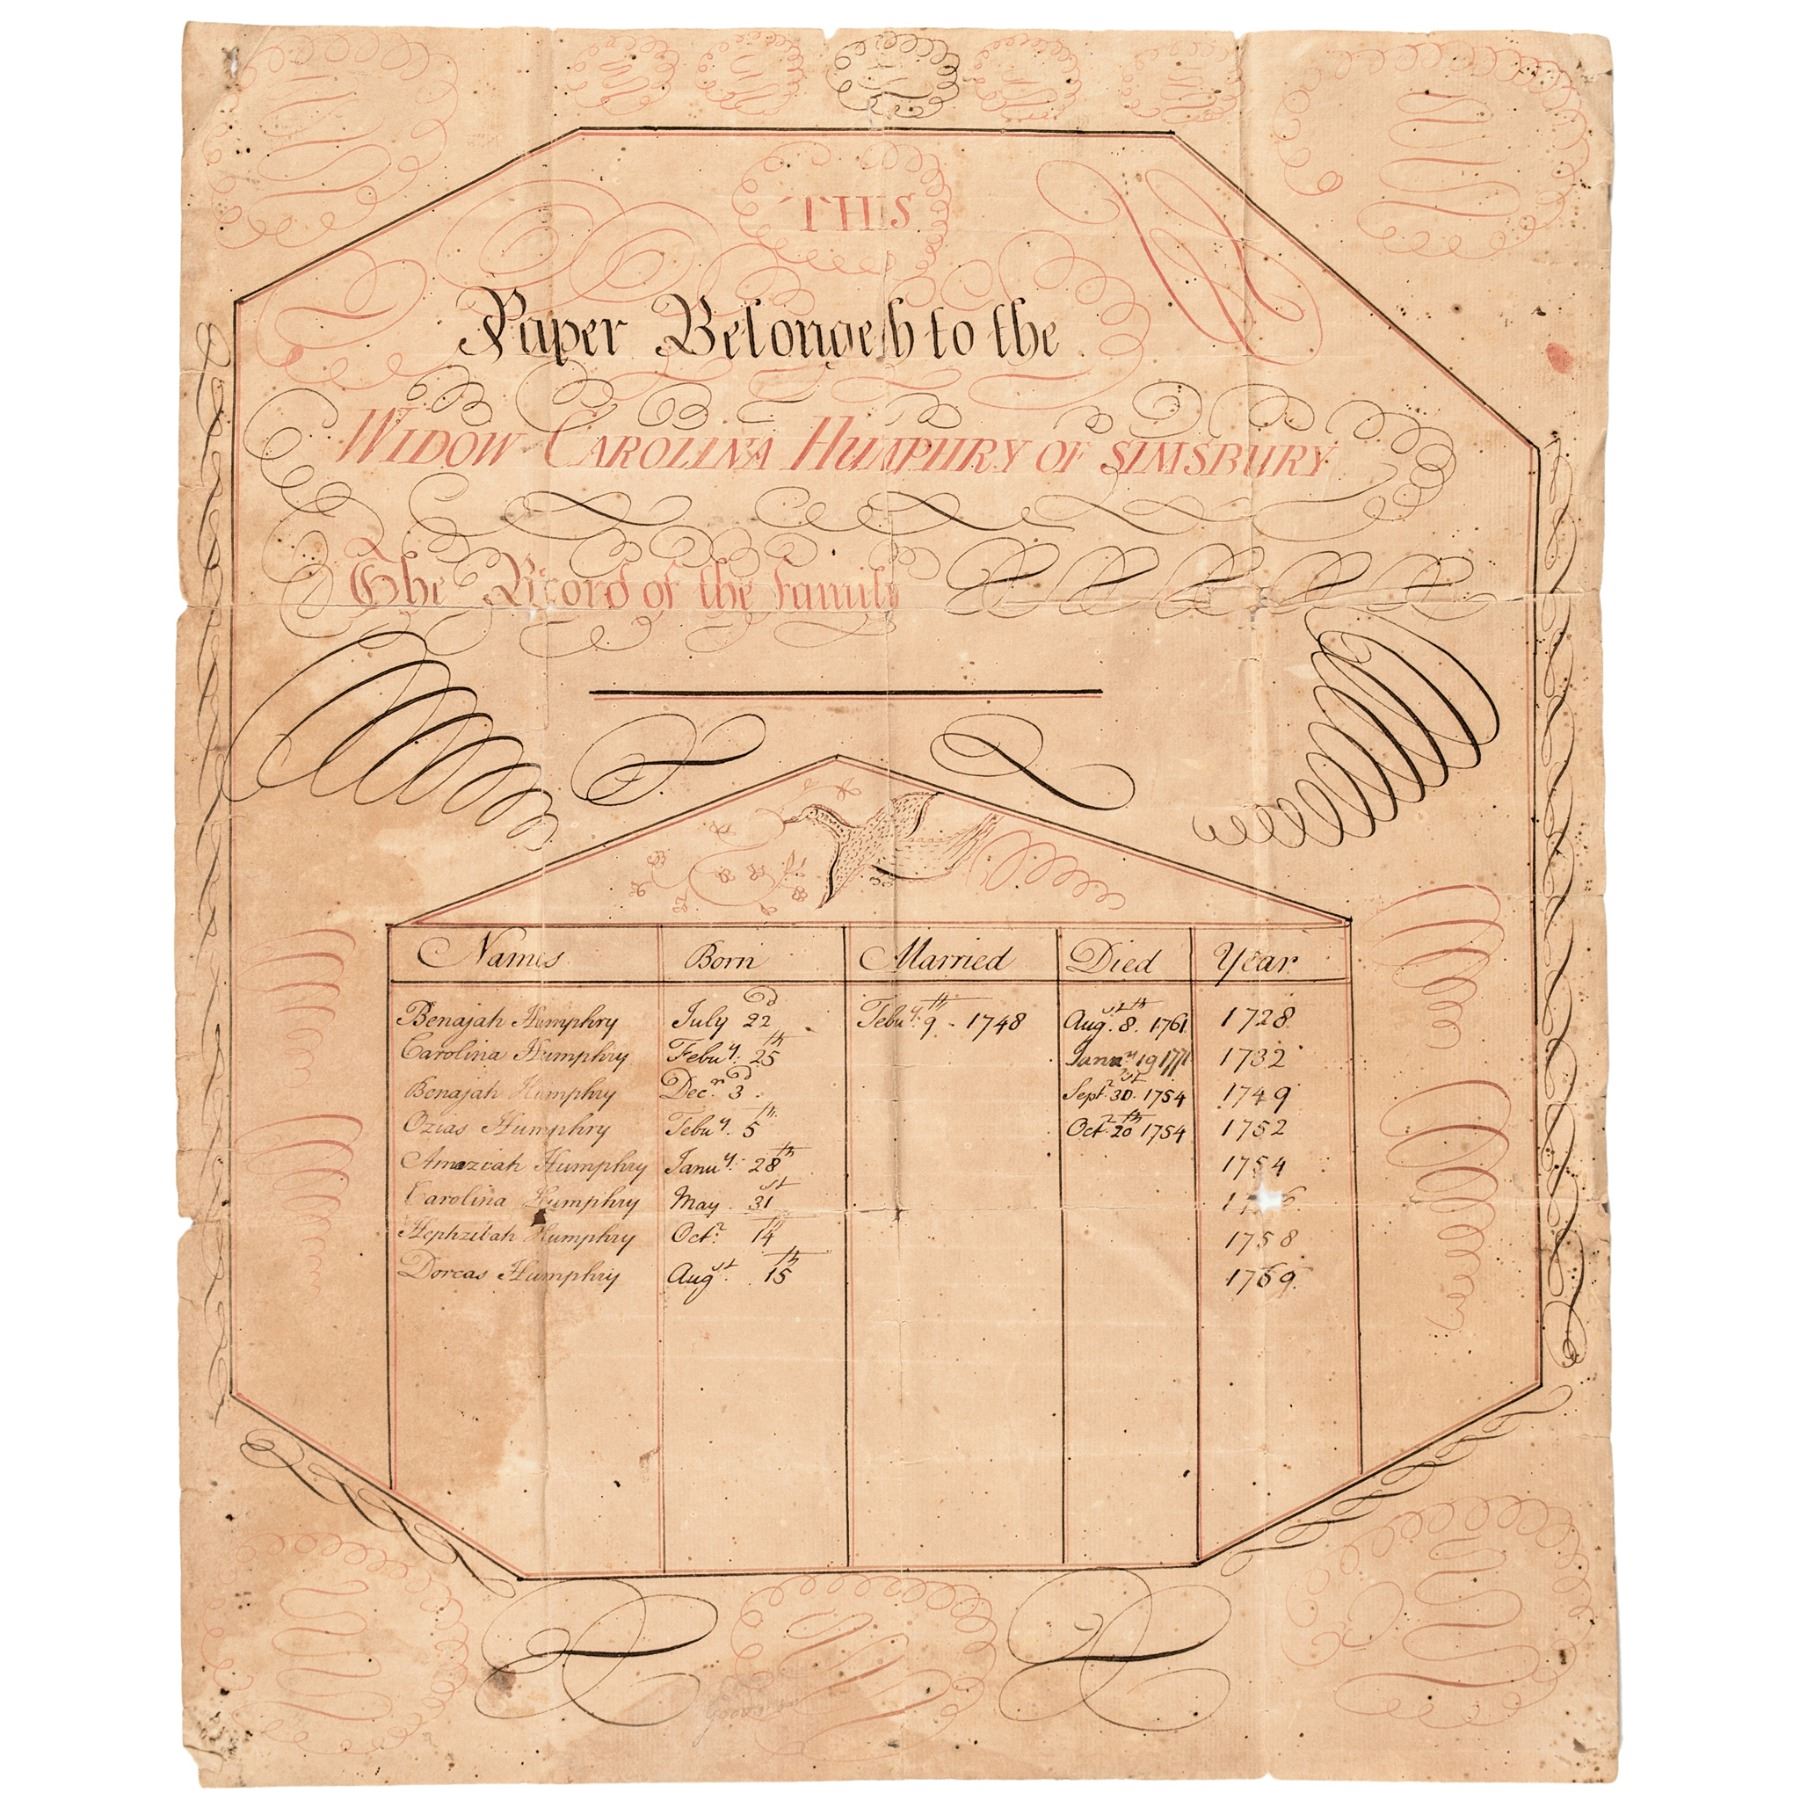 THIS
Paper Belongeth to the
WIDOW CAROLINA HUMPHRY OF SIMSBURY
The Record of the family
Names Born Married Died Year
Benajah Humphry July 22d Febuy. 9th - 1748 Augst. 8th. 1761 1728
Carolina Humphry Febuy: 25th 19 1771 1732
Benajah Humphry Decr. 3d. Sept. 30. 1754 1749
Ozias Humphry Febuy. 5th. Oct. 20th 1754 1752
Amaziah Humphry Januy: 28th 1754
Carolina Humphry May 31st
Hephzibah Humphry Octr. 14th 1758
Dorcas Humphry Augst. 15th